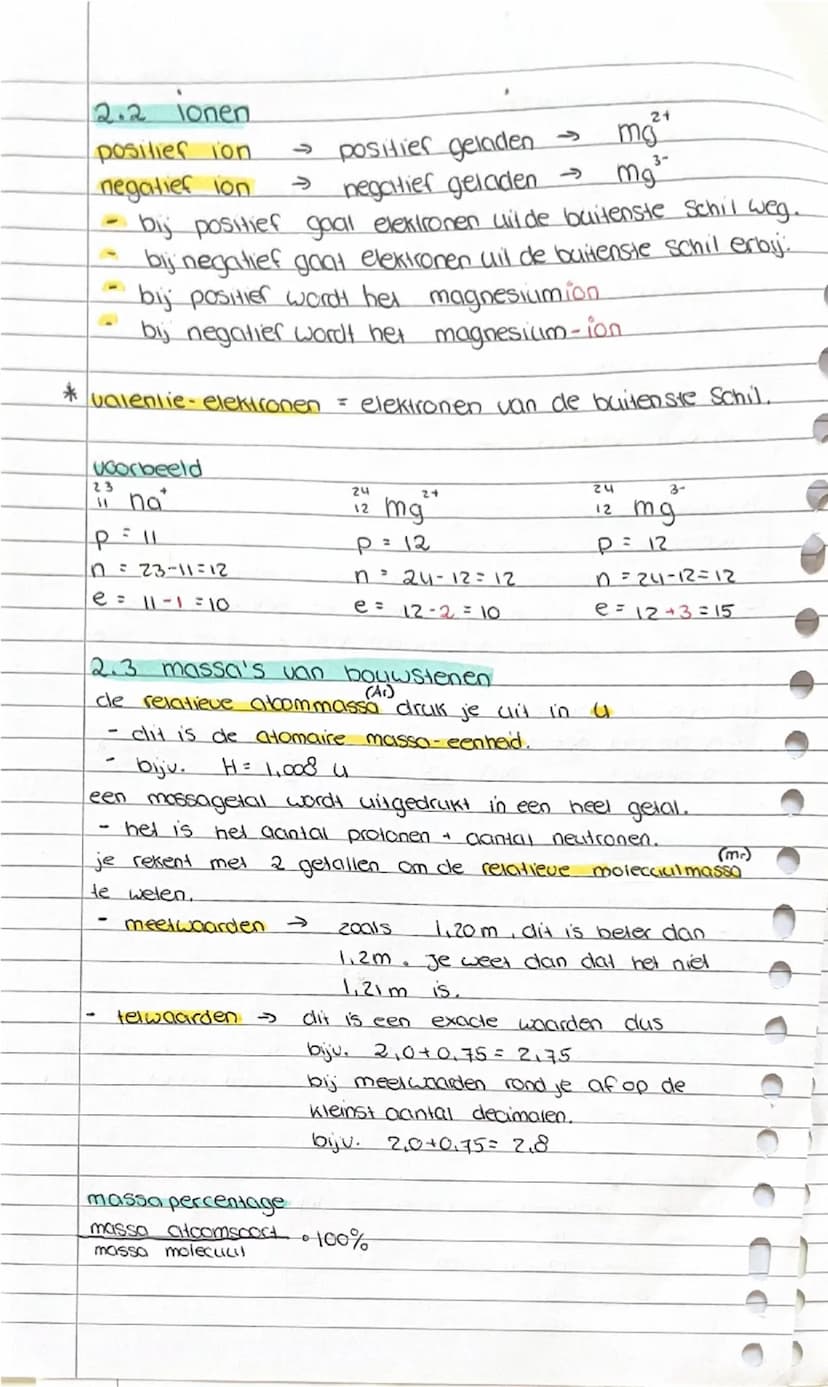 2.2 ionen
positief ion → positief geladen → mg²⁺
negatief ion → negatief geladen → mg³⁻
- bij positief gaat elektronen uit de buitenste schil weg.
- bij negatief gaat elektronen uit de buitenste schil erbij.
- bij positief wordt het magnesiumion
- bij negatief wordt het magnesium-ion
* valentie-elektronen = elektronen van de buitenste schil.
voorbeeld
²³₁₁ na⁺ ²⁴₁₂ mg²⁺ ²⁴₁₂ mg³⁻
p = 11 p = 12 p = 12
n = 23-11=12 n = 24-12=12 n = 24-12=12
e = 11-1=10 e = 12-2=10 e = 12+3=15
2.3 massa's van bouwstenen
de relatieve atoommassa (Ar) druk je uit in u
- dit is de atomaire massa-eenheid.
- bijv. H = 1,008 u
een massagetal wordt uitgedrukt in een heel getal.
- het is het aantal protonen + aantal neutronen.
je rekent met 2 getallen om de relatieve molecuulmassa (mr)
te weten.
- meetwaarden → zoals 1,20 m, dit is beter dan
1,2m. Je weet dan dat het niet
1,21m is.
- telwaarden → dit is een exacte waarden dus
bijv. 2,0+0,75 = 2,75
bij meetwaarden rond je af op de
kleinst aantal decimalen.
bijv. 2,0+0,75= 2,8
massapercentage
massa atoomsoort • 100%
massa molecuul